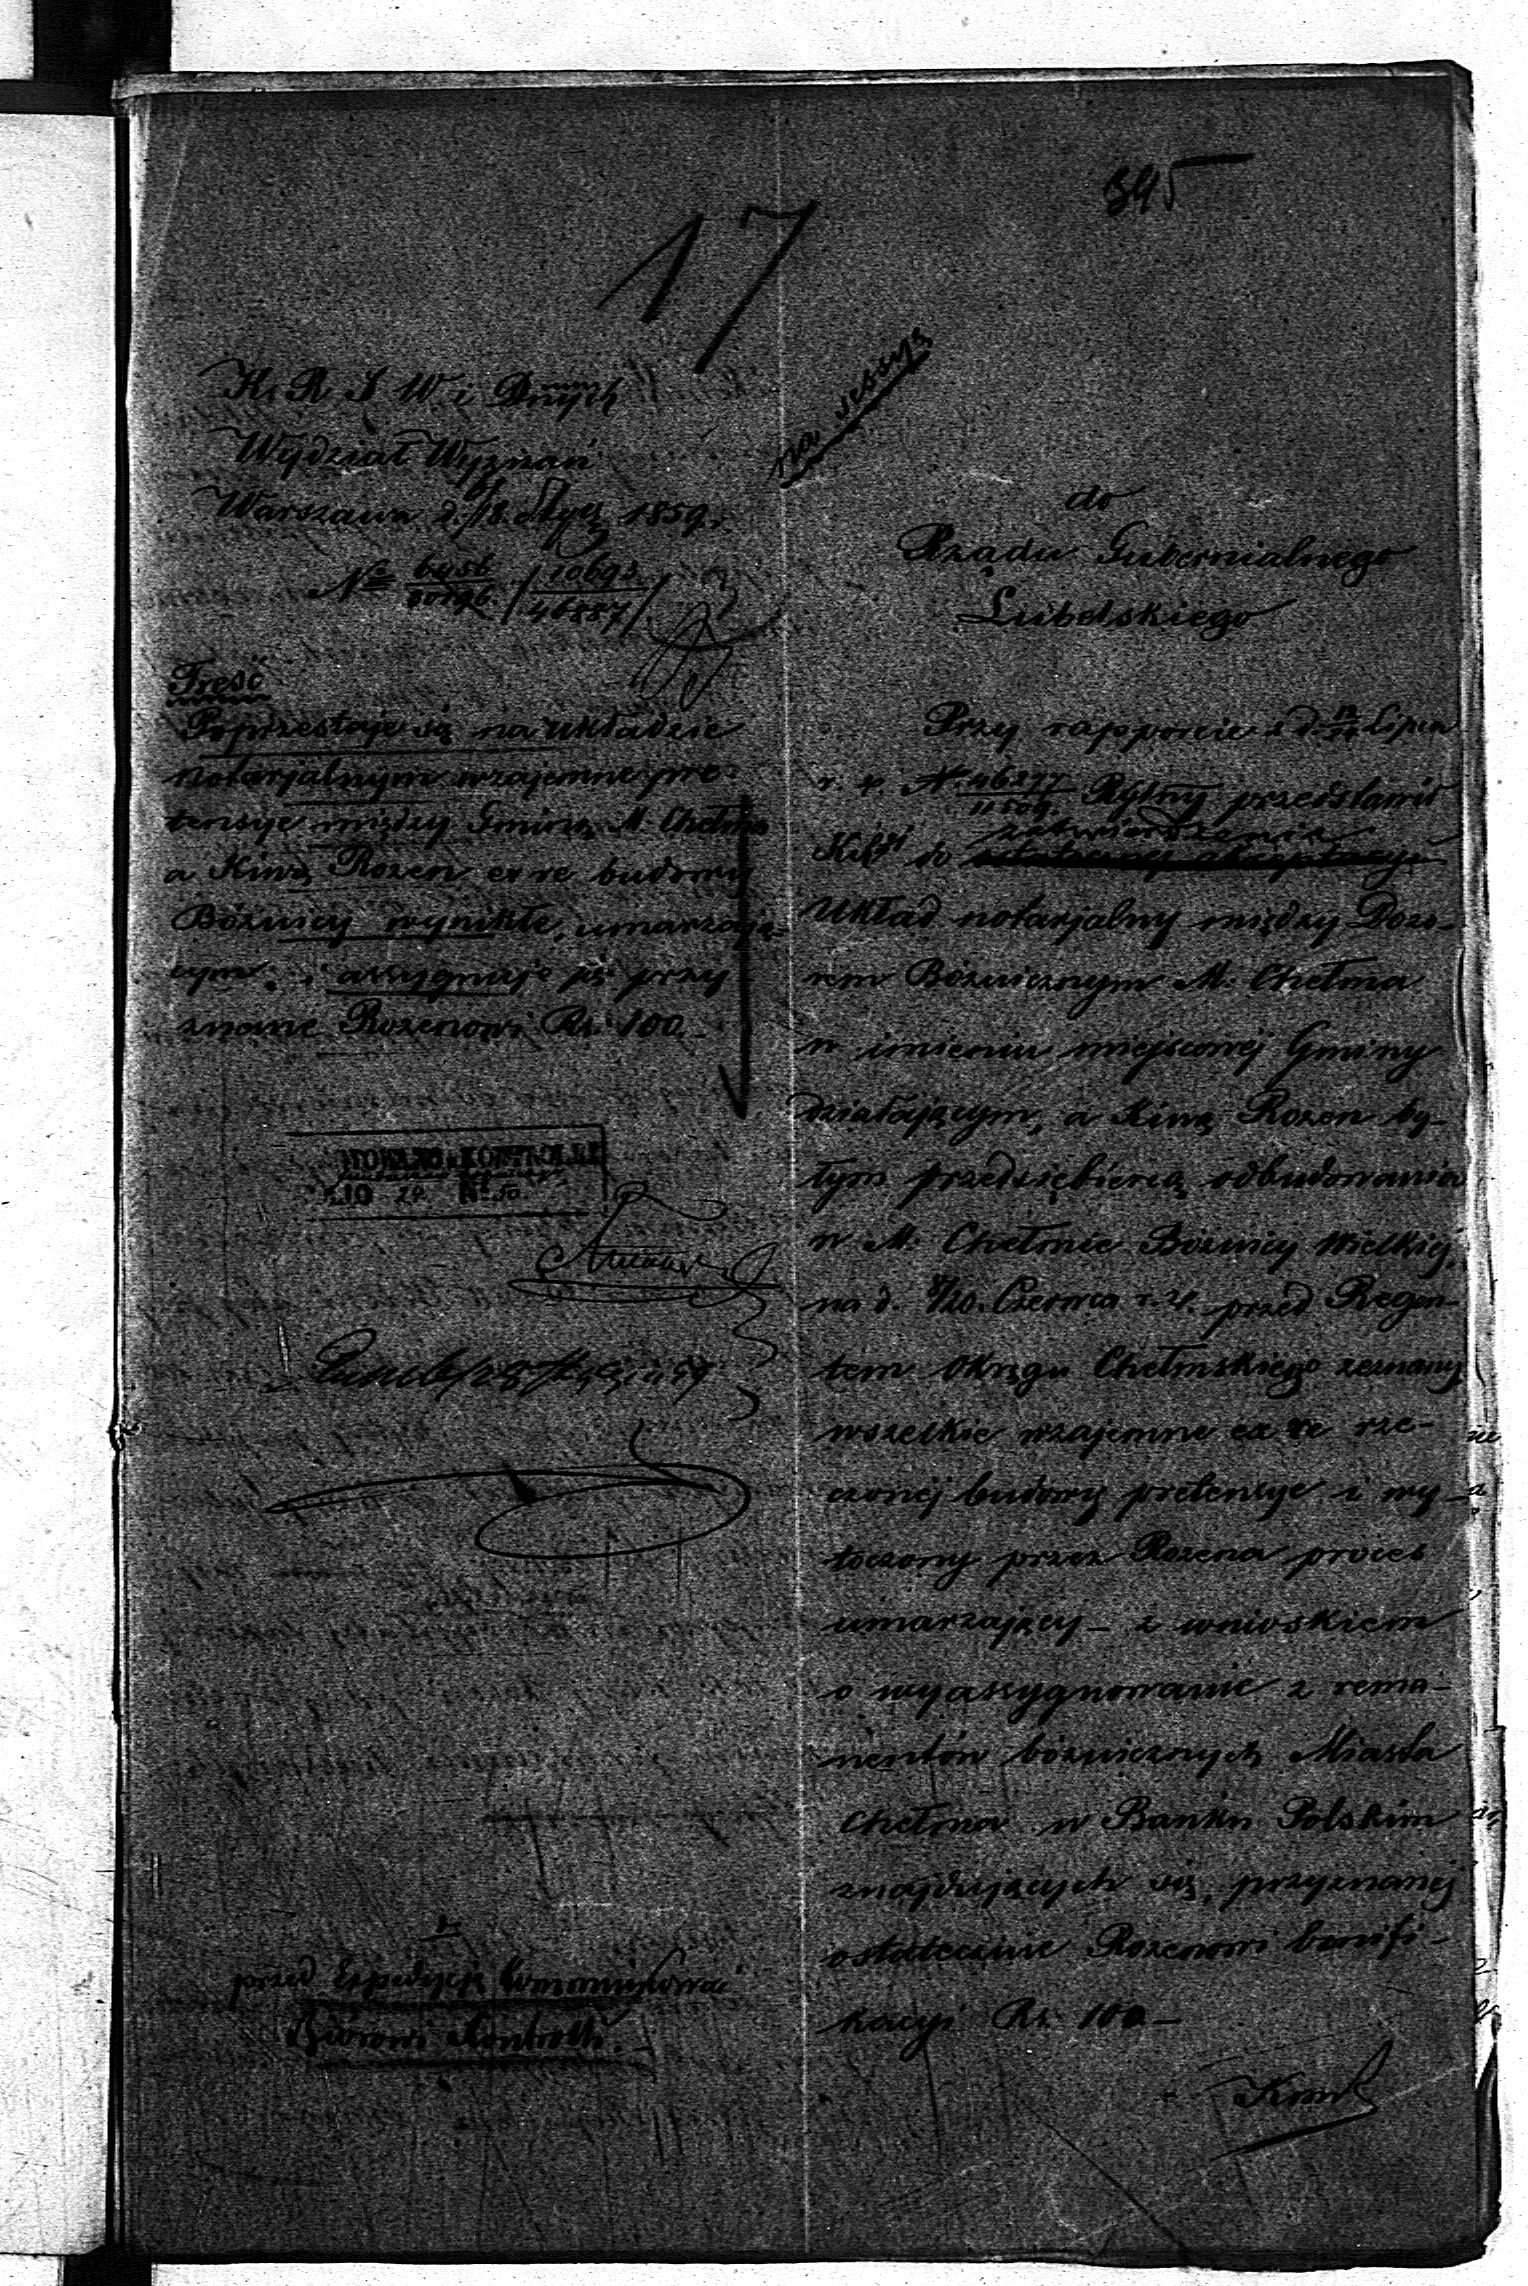 395
17
na sessyą
K. R. S. W. i D.nych
Wydział Wyznań
Warszawa d. 6/18. Stycz 1859. r.
No 6456 / 10693
46887
Treść
Poprzestaje się na układzie
notarjalnym wzajemne pre-
tensye między Gminą M. Chełma
a Kiwą Rozen ex re budowy
Bóżnicy wynikłe, umarzają-
cym i assygnuje się przy
znane Rozenowi Rs. 100
przed Expedycyą komunikować
Biurowi Kontrolli.
do
Rządu Gubernialnego
Lubelskiego
Przy rapporcie z d. 12/24 Lipca
r. z. N. 46277/11509. Rząd przedstawił
do zatwierdzenia
układ notarjalny między Dozo-
rem Bóżnicznym M. Chełma
w imieniu miejscowej Gminy
działającym, a Kiwą Rozen by-
łym przedsiębiercą odbudowania
w M. Chełmie Bóżnicy Wielkiej,
na d. 8/20. Czerwca r. z. przed Regen-
tem Okręgu Chełmskiego zeznany
wszelkie wzajemne ex re rze-
czonej budowy pretensye i wy-
toczony przez Rozena proces
umarzający – z wnioskiem
o wyassygnowanie z rema-
nentów bóżnicznych Miasta
Chełma w Banku Polskim
znajdujących się, przyznanej
ostatecznie Rozenowi bonifi-
kacyi Rs. 100 –